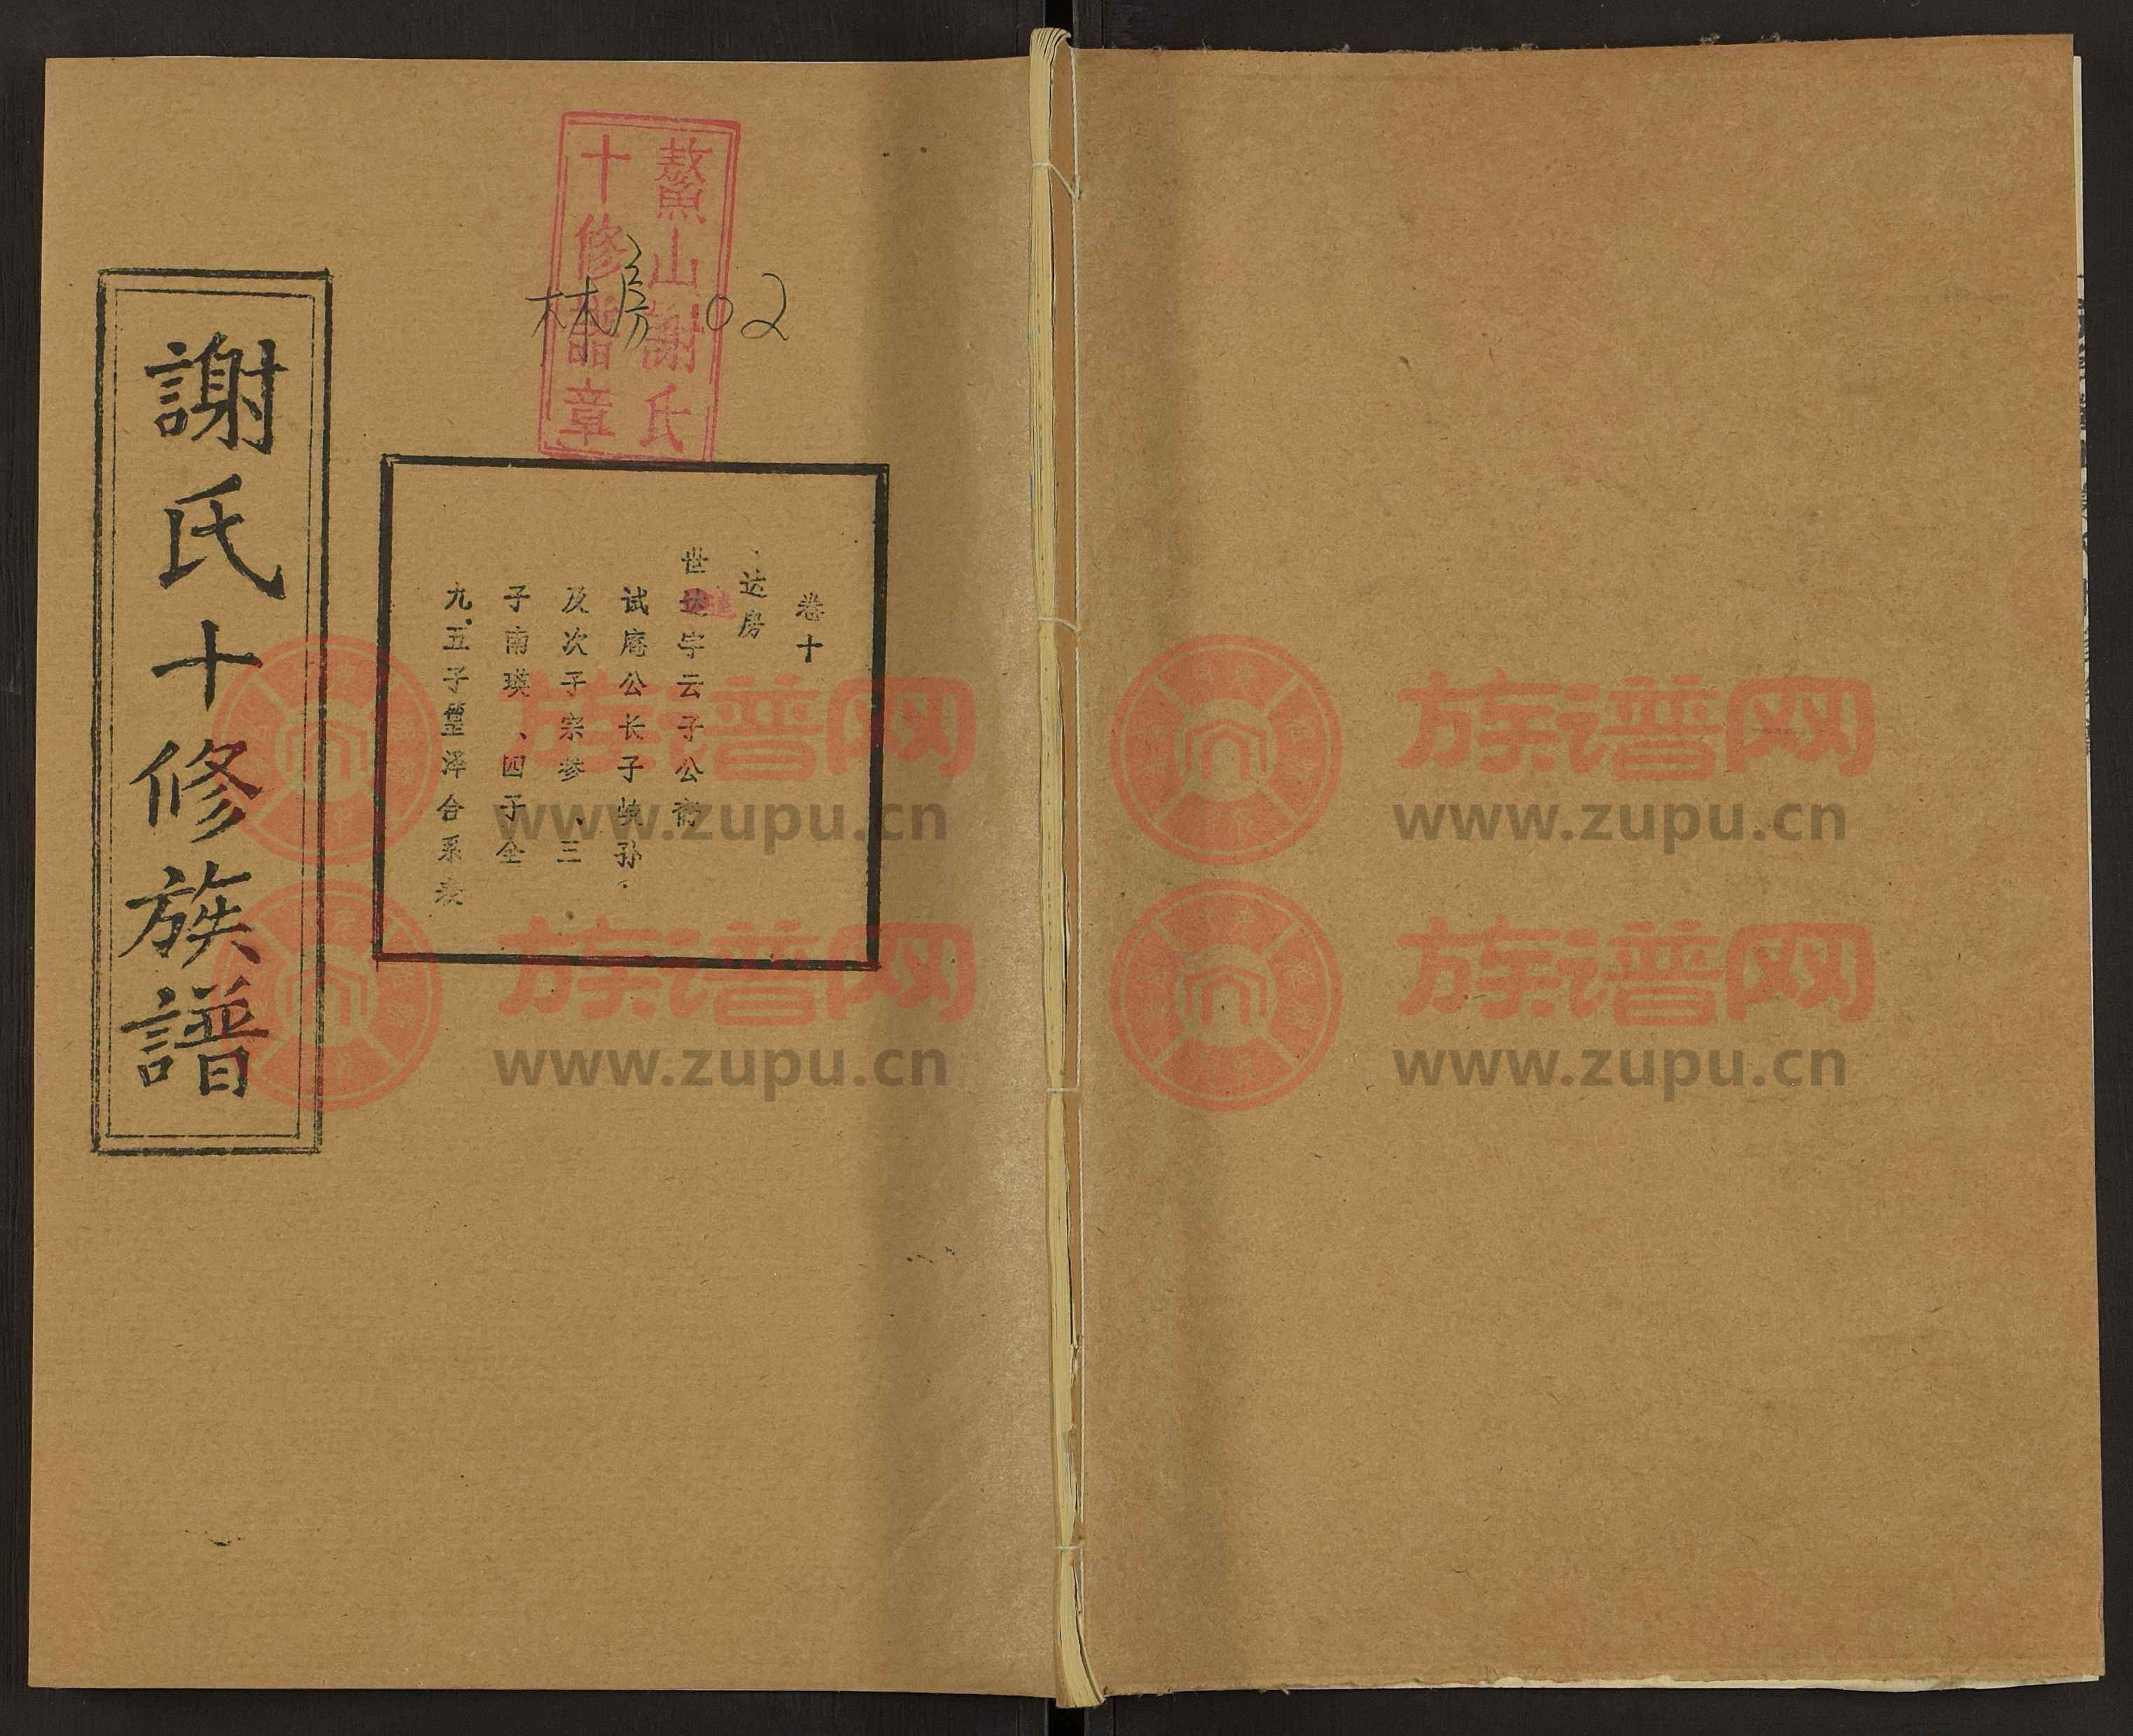 鰲山謝氏
十修譜章
林房 02
卷十
达房
世达字云子公裔
试庵公长子嶫孙
及次子宗参、三
子南瑛、四子全
九、五子篂泽合系表
謝氏十修族譜
族谱网
www.zupu.cn
族谱网
www.zupu.cn
族谱网
www.zupu.cn
族谱网
www.zupu.cn